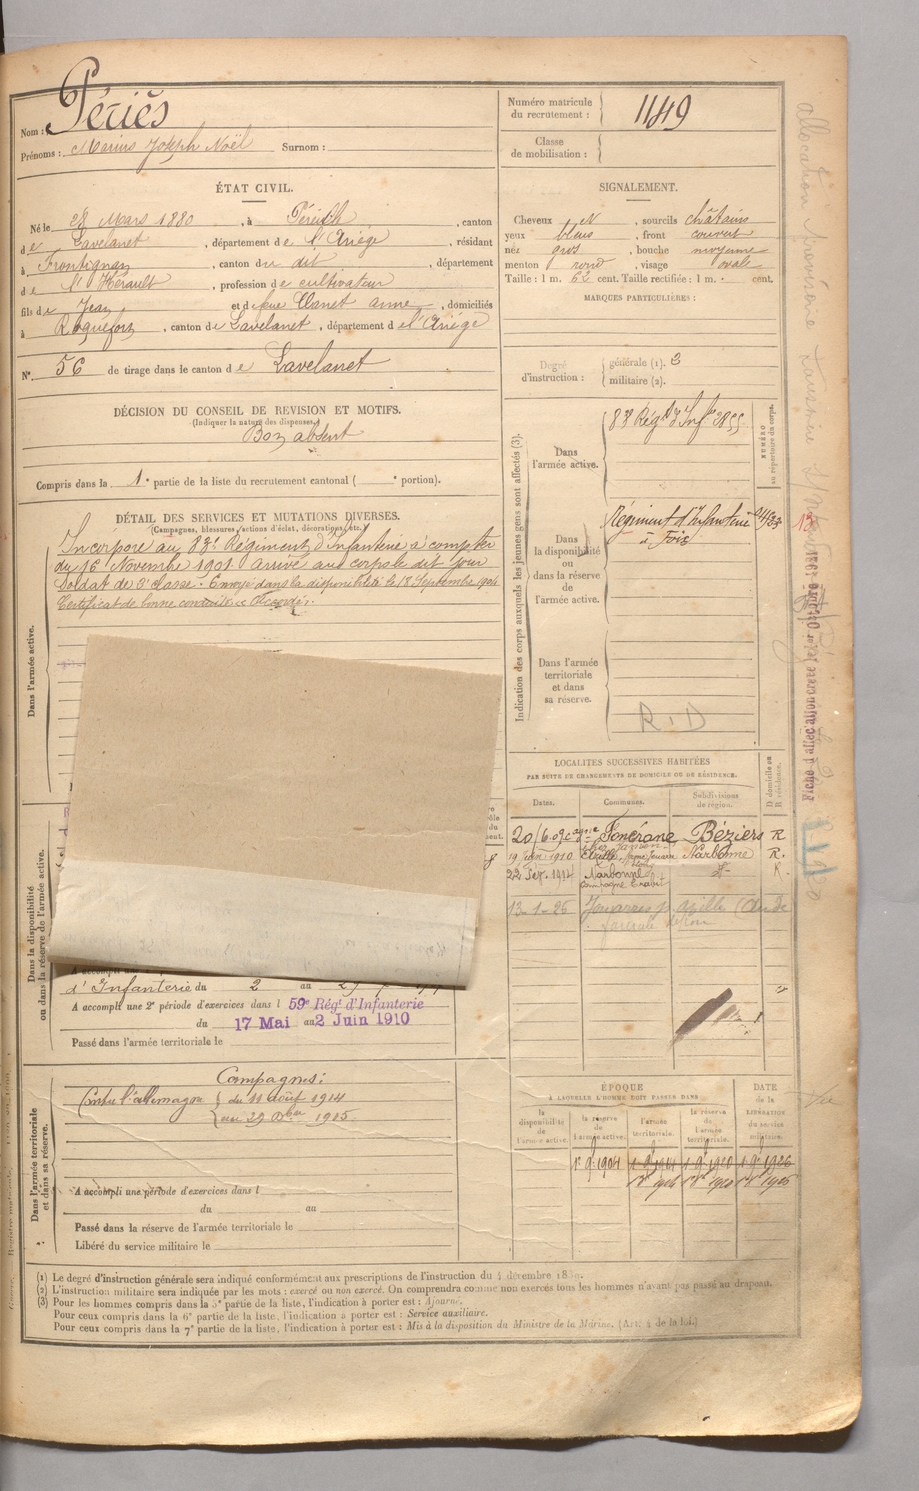 Nom : Périès
Prénoms : Marius Joseph Noël Surnom :
Numéro matricule
du recrutement : 1149
Classe
de mobilisation :
ÉTAT CIVIL.
Né le 28 Mars 1880, à Péreilh, canton
de Lavelanet, département de l'Ariège, résidant
à Frontignan, canton du dit, département
de l'Hérault, profession de cultivateur
fils de Jean et de feue Canet Anne, domiciliés
à Roquefort, canton de Lavelanet, département de l'Ariège
N° 56 de tirage dans le canton de Lavelanet
SIGNALEMENT.
Cheveux N, sourcils châtains
yeux bleus, front couvert
nez gros, bouche moyenne
menton rond, visage ovale
Taille : 1 m. 62 cent. Taille rectifiée : 1 m. cent.
MARQUES PARTICULIÈRES :
Degré
d'instruction :
générale (1). 3
militaire (2).
DÉCISION DU CONSEIL DE REVISION ET MOTIFS.
(Indiquer la nature des dispenses.)
Bon absent
Compris dans la 1e partie de la liste du recrutement cantonal ( e portion).
DÉTAIL DES SERVICES ET MUTATIONS DIVERSES.
(Campagnes, blessures, actions d'éclat, décorations, etc.)
Dans l'armée active.
Incorporé au 83e Régiment d'Infanterie à compter
du 16 Novembre 1901 arrivé au corps le dit jour
Soldat de 2e classe. Envoyé dans la disponibilité le 18 Septembre 1904
Certificat de bonne conduite « Accordé ».
Indication des corps auxquels les jeunes gens sont affectés (3).
NUMÉRO
au répertoire du corps.
Dans
l'armée active.
83e Régt d'Infie 2855
Dans
la disponibilité
ou
dans la réserve
de
l'armée active.
Régiment d'Infanterie
à Foix
Dans l'armée
territoriale
et dans
sa réserve.
R.D
Fiche d'allocation créée le 1er Octobre 1921
LOCALITÉS SUCCESSIVES HABITÉES
PAR SUITE DE CHANGEMENTS DE DOMICILE OU DE RÉSIDENCE.
Dates. Communes. Subdivisions
de région. D domicile ou
R résidence.
Béziers R
19 Juin 1910 Narbonne R.
22 Sep. 1914 Narbonne R.
13-1-26
Dans la disponibilité
ou dans la réserve de l'armée active.
d'Infanterie du 2 au
A accompli une 2e période d'exercices dans l 59e Régt d'Infanterie
du 17 Mai au 2 Juin 1910
Passé dans l'armée territoriale le
Dans l'armée territoriale
et dans sa réserve.
Campagnes :
Contre l'Allemagne du 11 Août 1914
au 29 Xbre 1915
A accompli une période d'exercices dans l
du au
Passé dans la réserve de l'armée territoriale le
Libéré du service militaire le
ÉPOQUE
À LAQUELLE L'HOMME DOIT PASSER DANS
la
disponibilité
de
l'armée active.
la réserve
de
l'armée active.
l'armée
territoriale.
la réserve
de
l'armée
territoriale.
DATE
de la
LIBÉRATION
du service
militaire.
(1) Le degré d'instruction générale sera indiqué conformément aux prescriptions de l'instruction du 4 décembre 1889.
(2) L'instruction militaire sera indiquée par les mots : exercé ou non exercé. On comprendra comme non exercés tous les hommes n'ayant pas passé au drapeau.
(3) Pour les hommes compris dans la 5e partie de la liste, l'indication à porter est : Ajourné.
Pour ceux compris dans la 6e partie de la liste, l'indication à porter est : Service auxiliaire.
Pour ceux compris dans la 7e partie de la liste, l'indication à porter est : Mis à la disposition du Ministre de la Marine. (Art. 4 de la loi.)